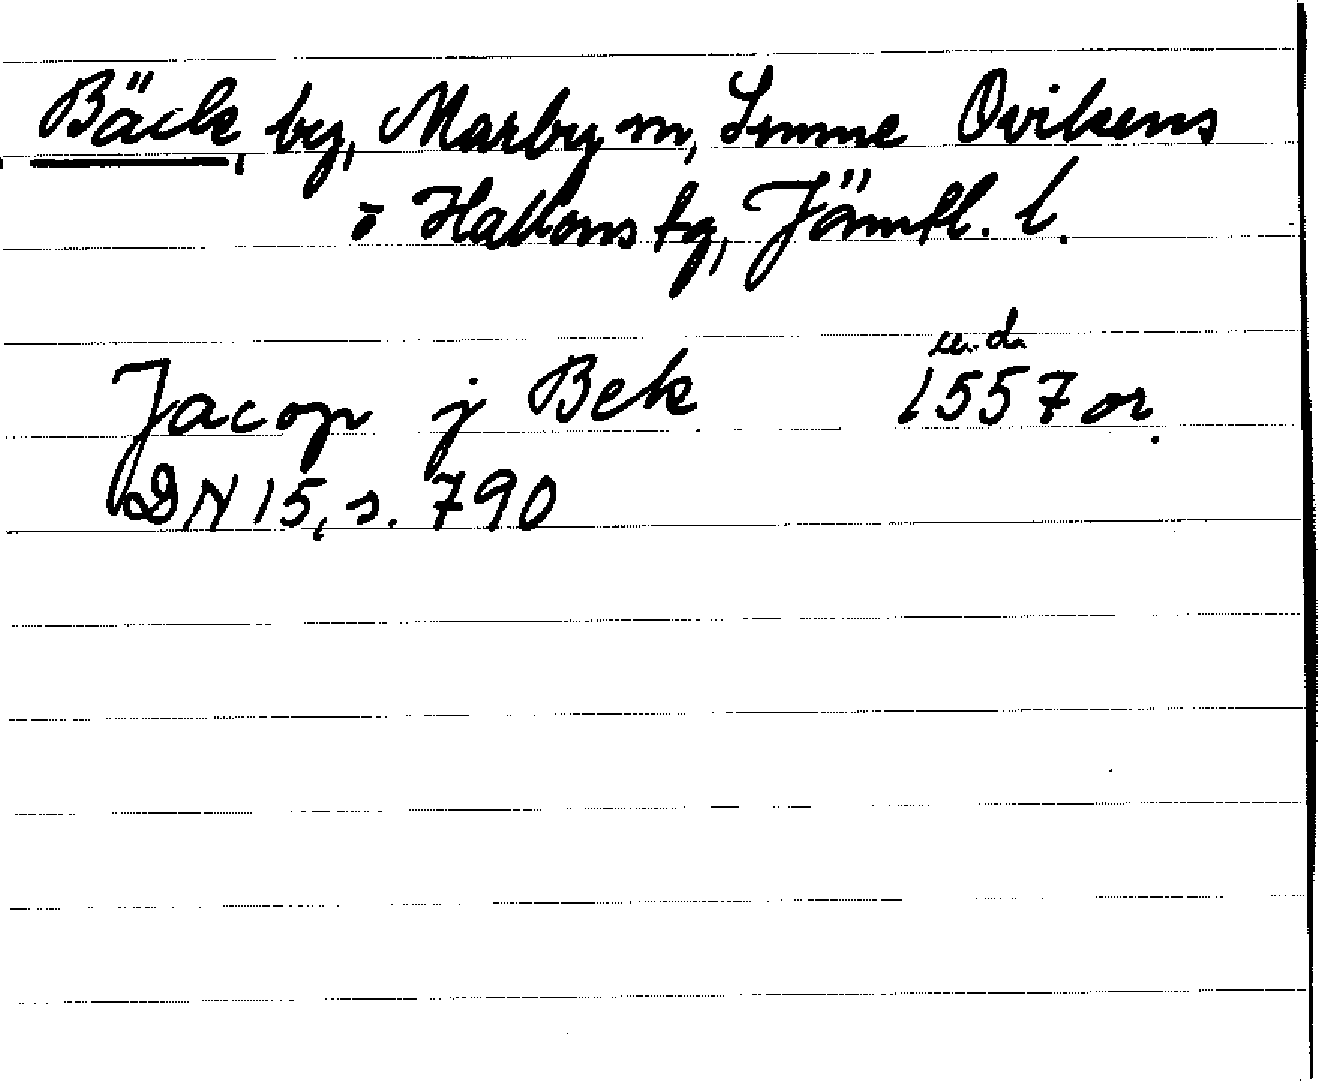 Bäck, by, Marby sn, Sunne Ovikens
o Hallens tg, Jämtl. l.
u. d.
Jacop j Bek 1557 or.
DN 15, s. 790